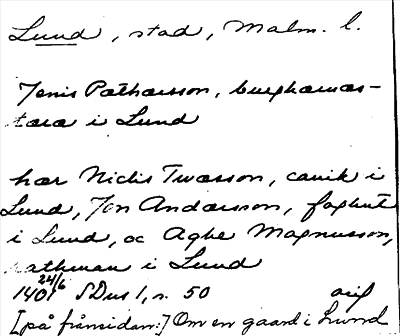 Lund, stad, Malm. l.
Jonis Pathærsson, burghamæs-
tara i Lund
hær Niclis Twæsson, canik i
Lund, Jon Andærsson, foghut
i Lund, oc Aghe Magnusson,
rathman i Lund
1401 24/6 SDns 1, n. 50 orig
[på frånsidan:] Om en gaard i Lund